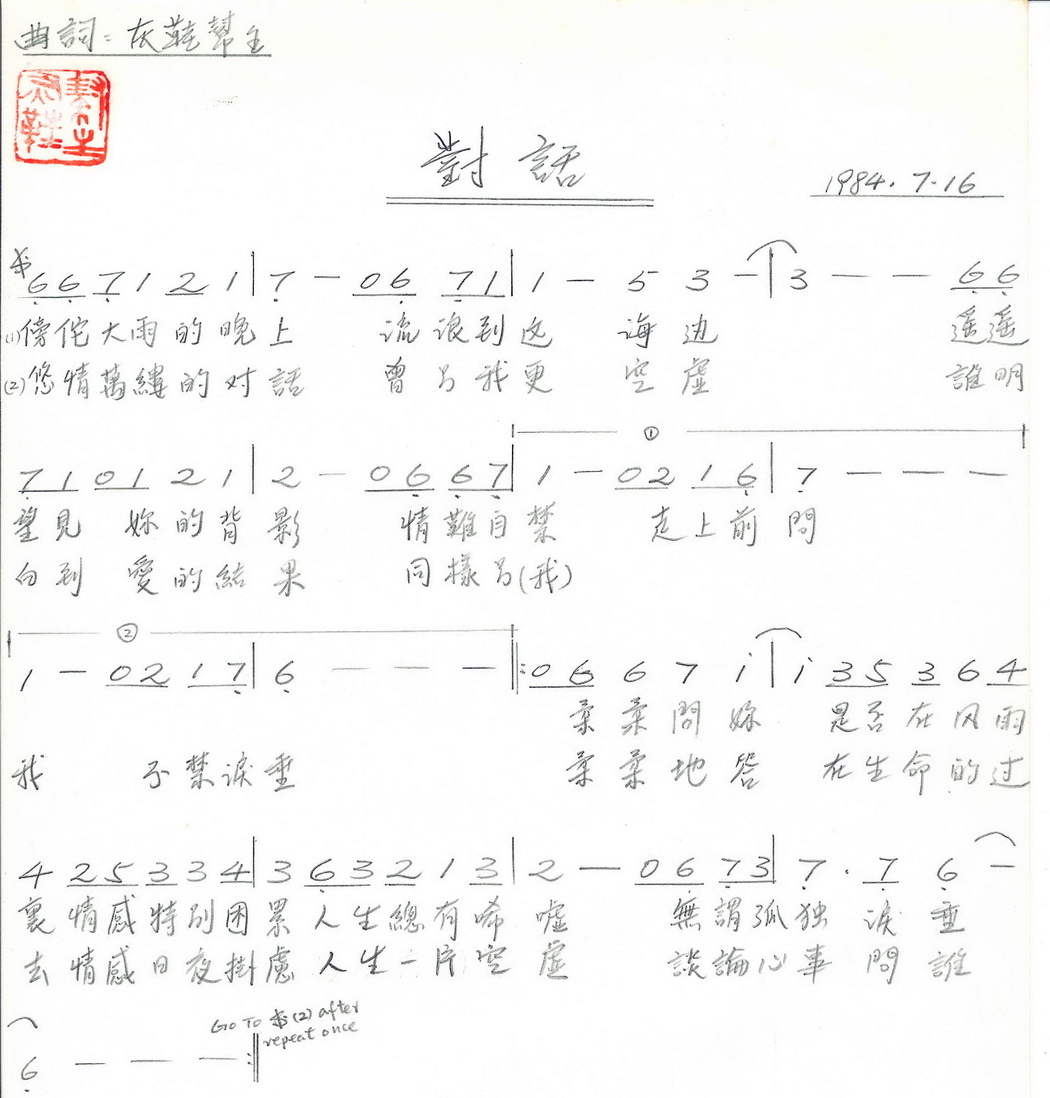 曲詞：灰鞋幫主
灰鞋幫主
對話
1984.7.16
6 6 7 1 2 1 | 7 — 0 6 7 1 | 1 — 5 3 — | 3 — — 6 6
(1) 傍佗大雨的晚上 流浪到这海边 遥遥
(2) 悠情萬縷的对話 曾令我更空虛 誰明
①
7 1 0 1 2 1 | 2 — 0 6 6 7 | 1 — 0 2 1 6 | 7 — — —
望見 妳的背影 情難自禁 走上前問
白到 愛的結果 同樣令(我)
②
1 — 0 2 1 7 | 6 — — — ‖: 0 6 6 7 i | i 3 5 3 6 4
柔柔問妳 是否在风雨
我 不禁淚垂 柔柔地答 在生命的过
4 2 5 3 3 4 | 3 6 3 2 1 3 | 2 — 0 6 7 3 | 7 . 7 6 —
裏情感特別困累 人生總有唏嘘 無謂孤独淚垂
去情感日夜掛慮 人生一片空虛 談論心事問誰
Go To (2) after
repeat once
6 — — — :‖